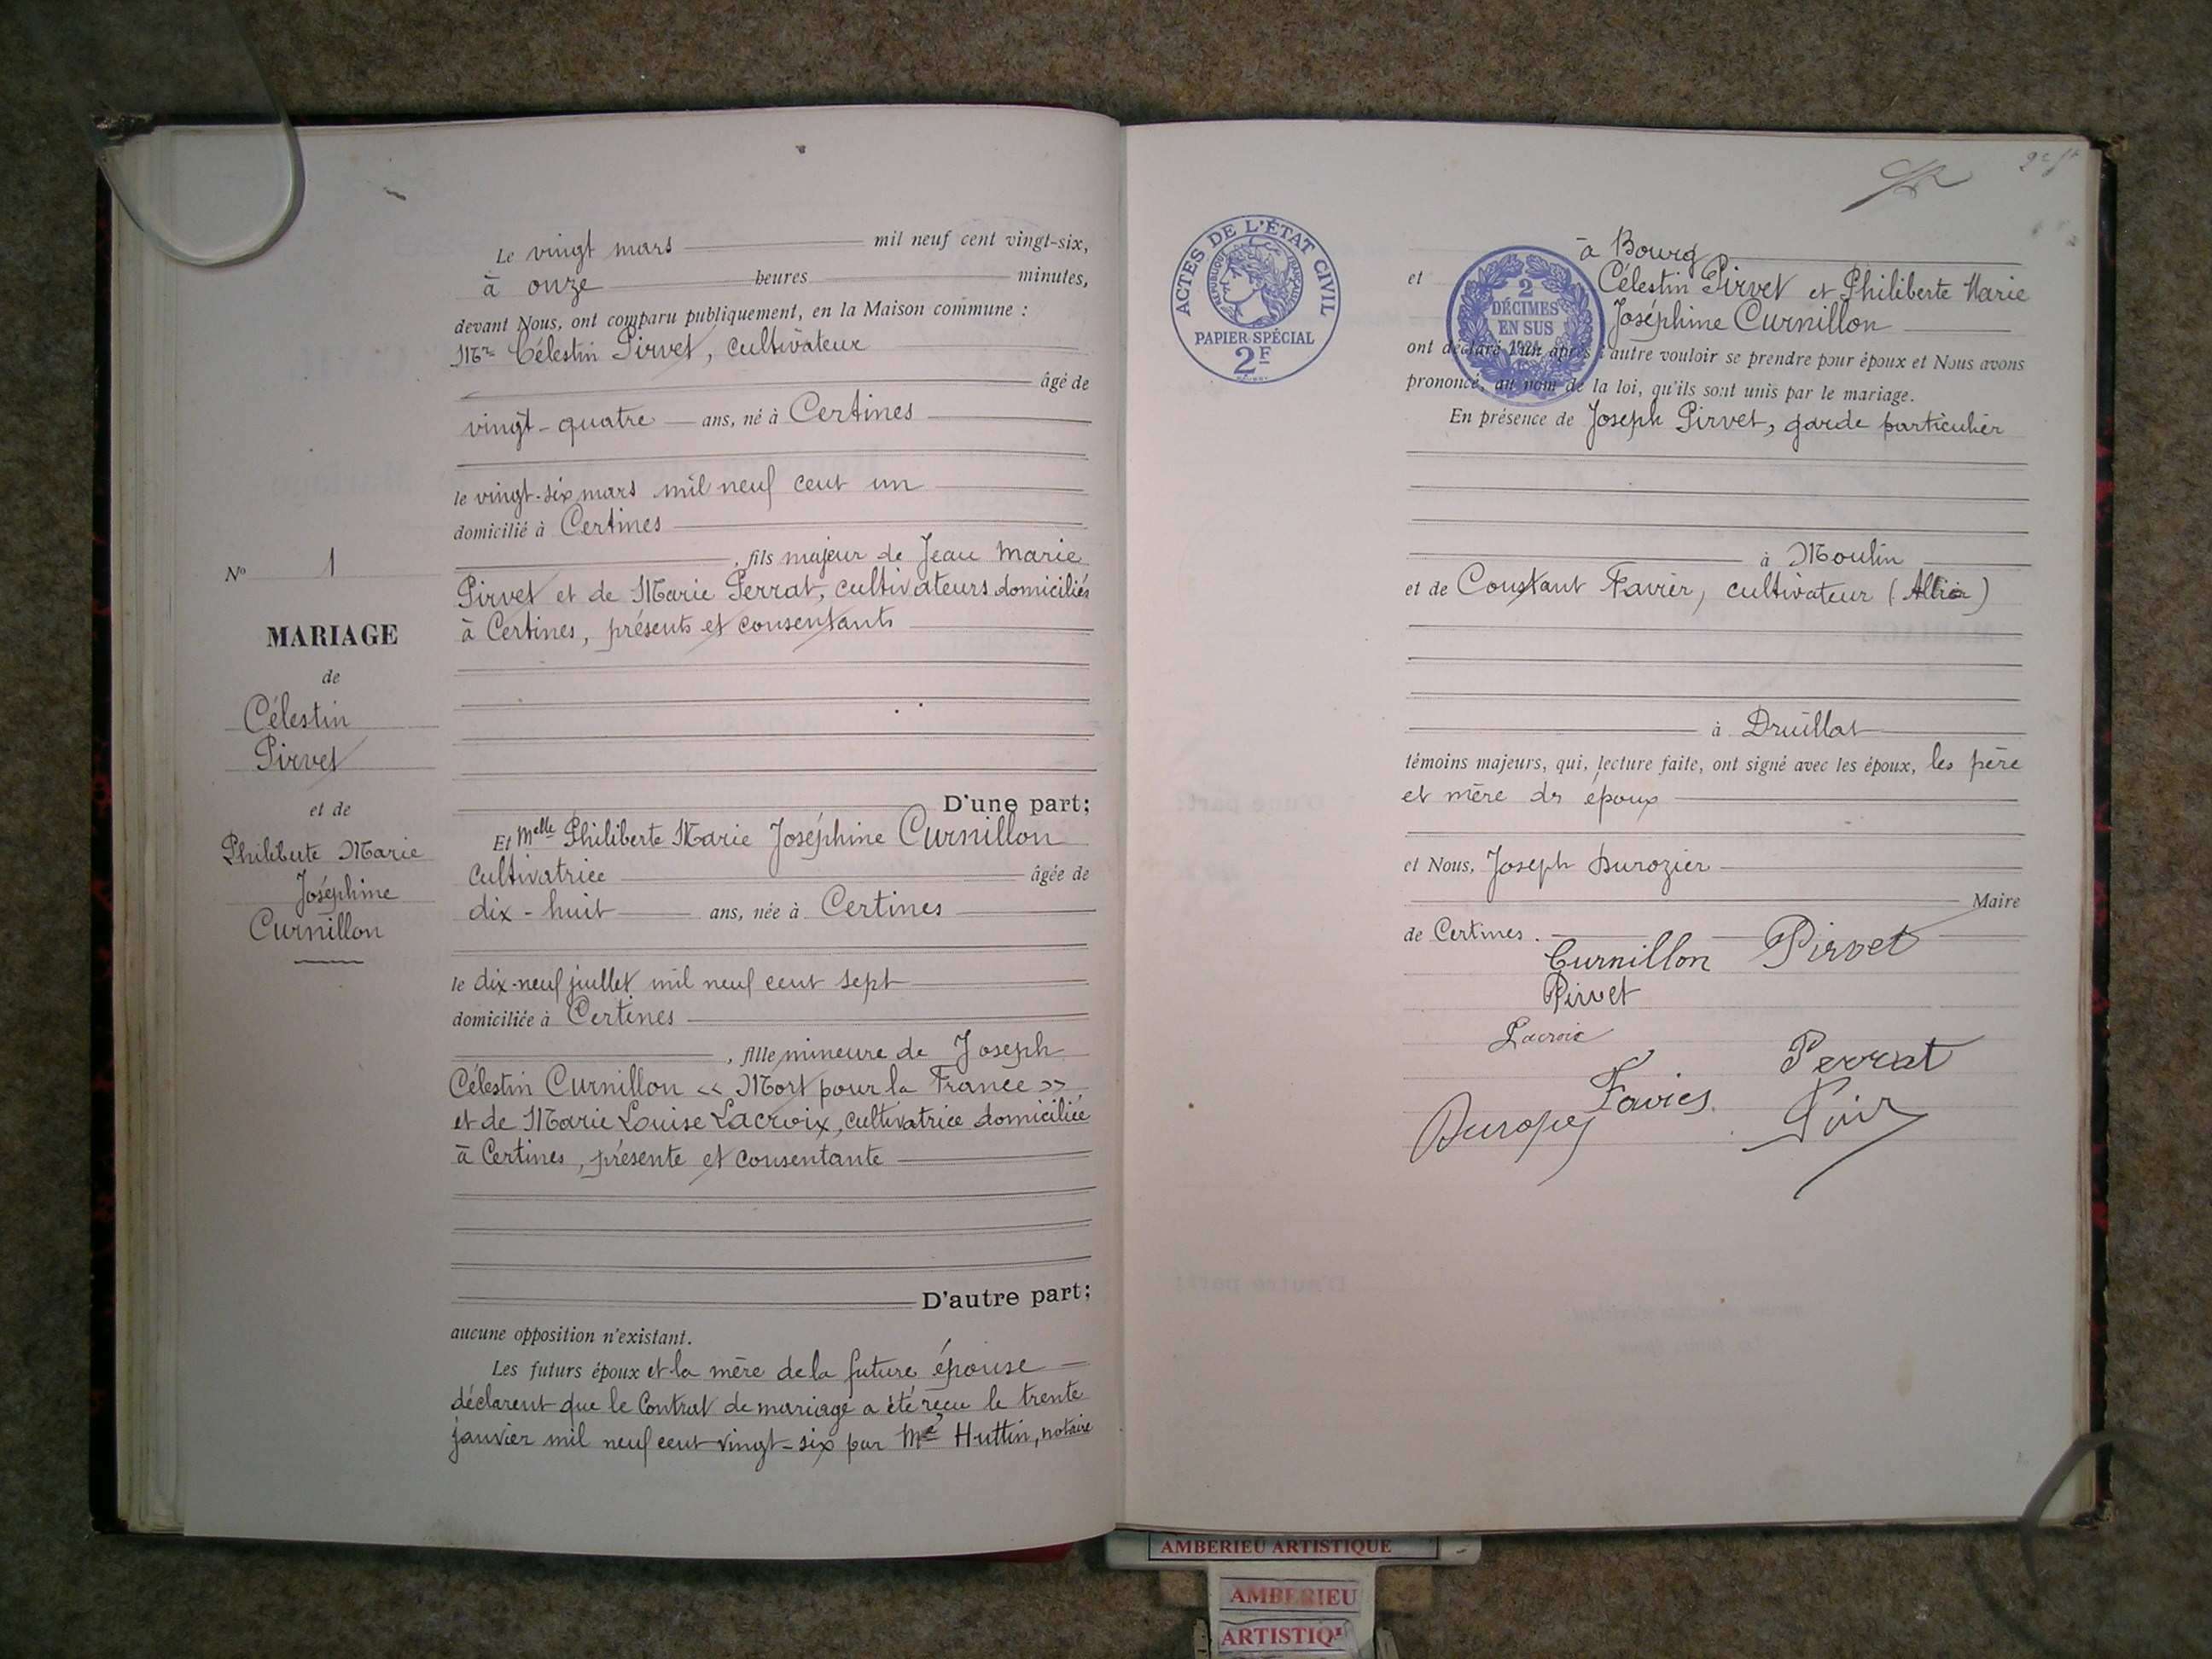 Le vingt mars mil neuf cent vingt-six,
à onze heures minutes,
devant Nous, ont comparu publiquement, en la Maison commune :
Mr Célestin Pirvet, cultivateur
âgé de
vingt-quatre ans, né à Certines
le vingt-six mars mil neuf cent un
domicilié à Certines
, fils majeur de Jean Marie
Pirvet et de Marie Perrat, cultivateurs domiciliés
à Certines, présents et consentants
D'une part;
Et Melle Philiberte Marie Joséphine Curnillon
cultivatrice âgée de
dix-huit ans, née à Certines
le dix-neuf juillet mil neuf cent sept
domiciliée à Certines
, fille mineure de Joseph
Célestin Curnillon « Mort pour la France »
et de Marie Louise Lacroix, cultivatrice domiciliée
à Certines, présente et consentante
D'autre part;
aucune opposition n'existant.
Les futurs époux et la mère de la future épouse
déclarent que le contrat de mariage a été reçu le trente
janvier mil neuf cent vingt-six par Me Huttin, notaire
No 1
MARIAGE
de
Célestin
Pirvet
et de
Philiberte Marie
Joséphine
Curnillon
ACTES DE L'ÉTAT CIVIL
RÉPUBLIQUE FRANÇAISE
PAPIER SPÉCIAL
2F
2
DÉCIMES
EN SUS
1924
à Bourg
et Célestin Pirvet et Philiberte Marie
Joséphine Curnillon
ont déclaré l'un après l'autre vouloir se prendre pour époux et Nous avons
prononcé, au nom de la loi, qu'ils sont unis par le mariage.
En présence de Joseph Pirvet, garde particulier
à Moulin
et de Constant Favier, cultivateur (Allier)
à Druillat
témoins majeurs, qui, lecture faite, ont signé avec les époux, les père
et mère dr époux
et Nous, Joseph Durozier
Maire
de Certines.
Curnillon Pirvet
Pirvet
Lacroix
Perrat
Favier
AMBERIEU ARTISTIQUE
AMBERIEU
ARTISTIQ